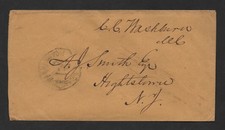 C.C. Washburn
MC
J. Smith Esq
Hightstown
N.J.